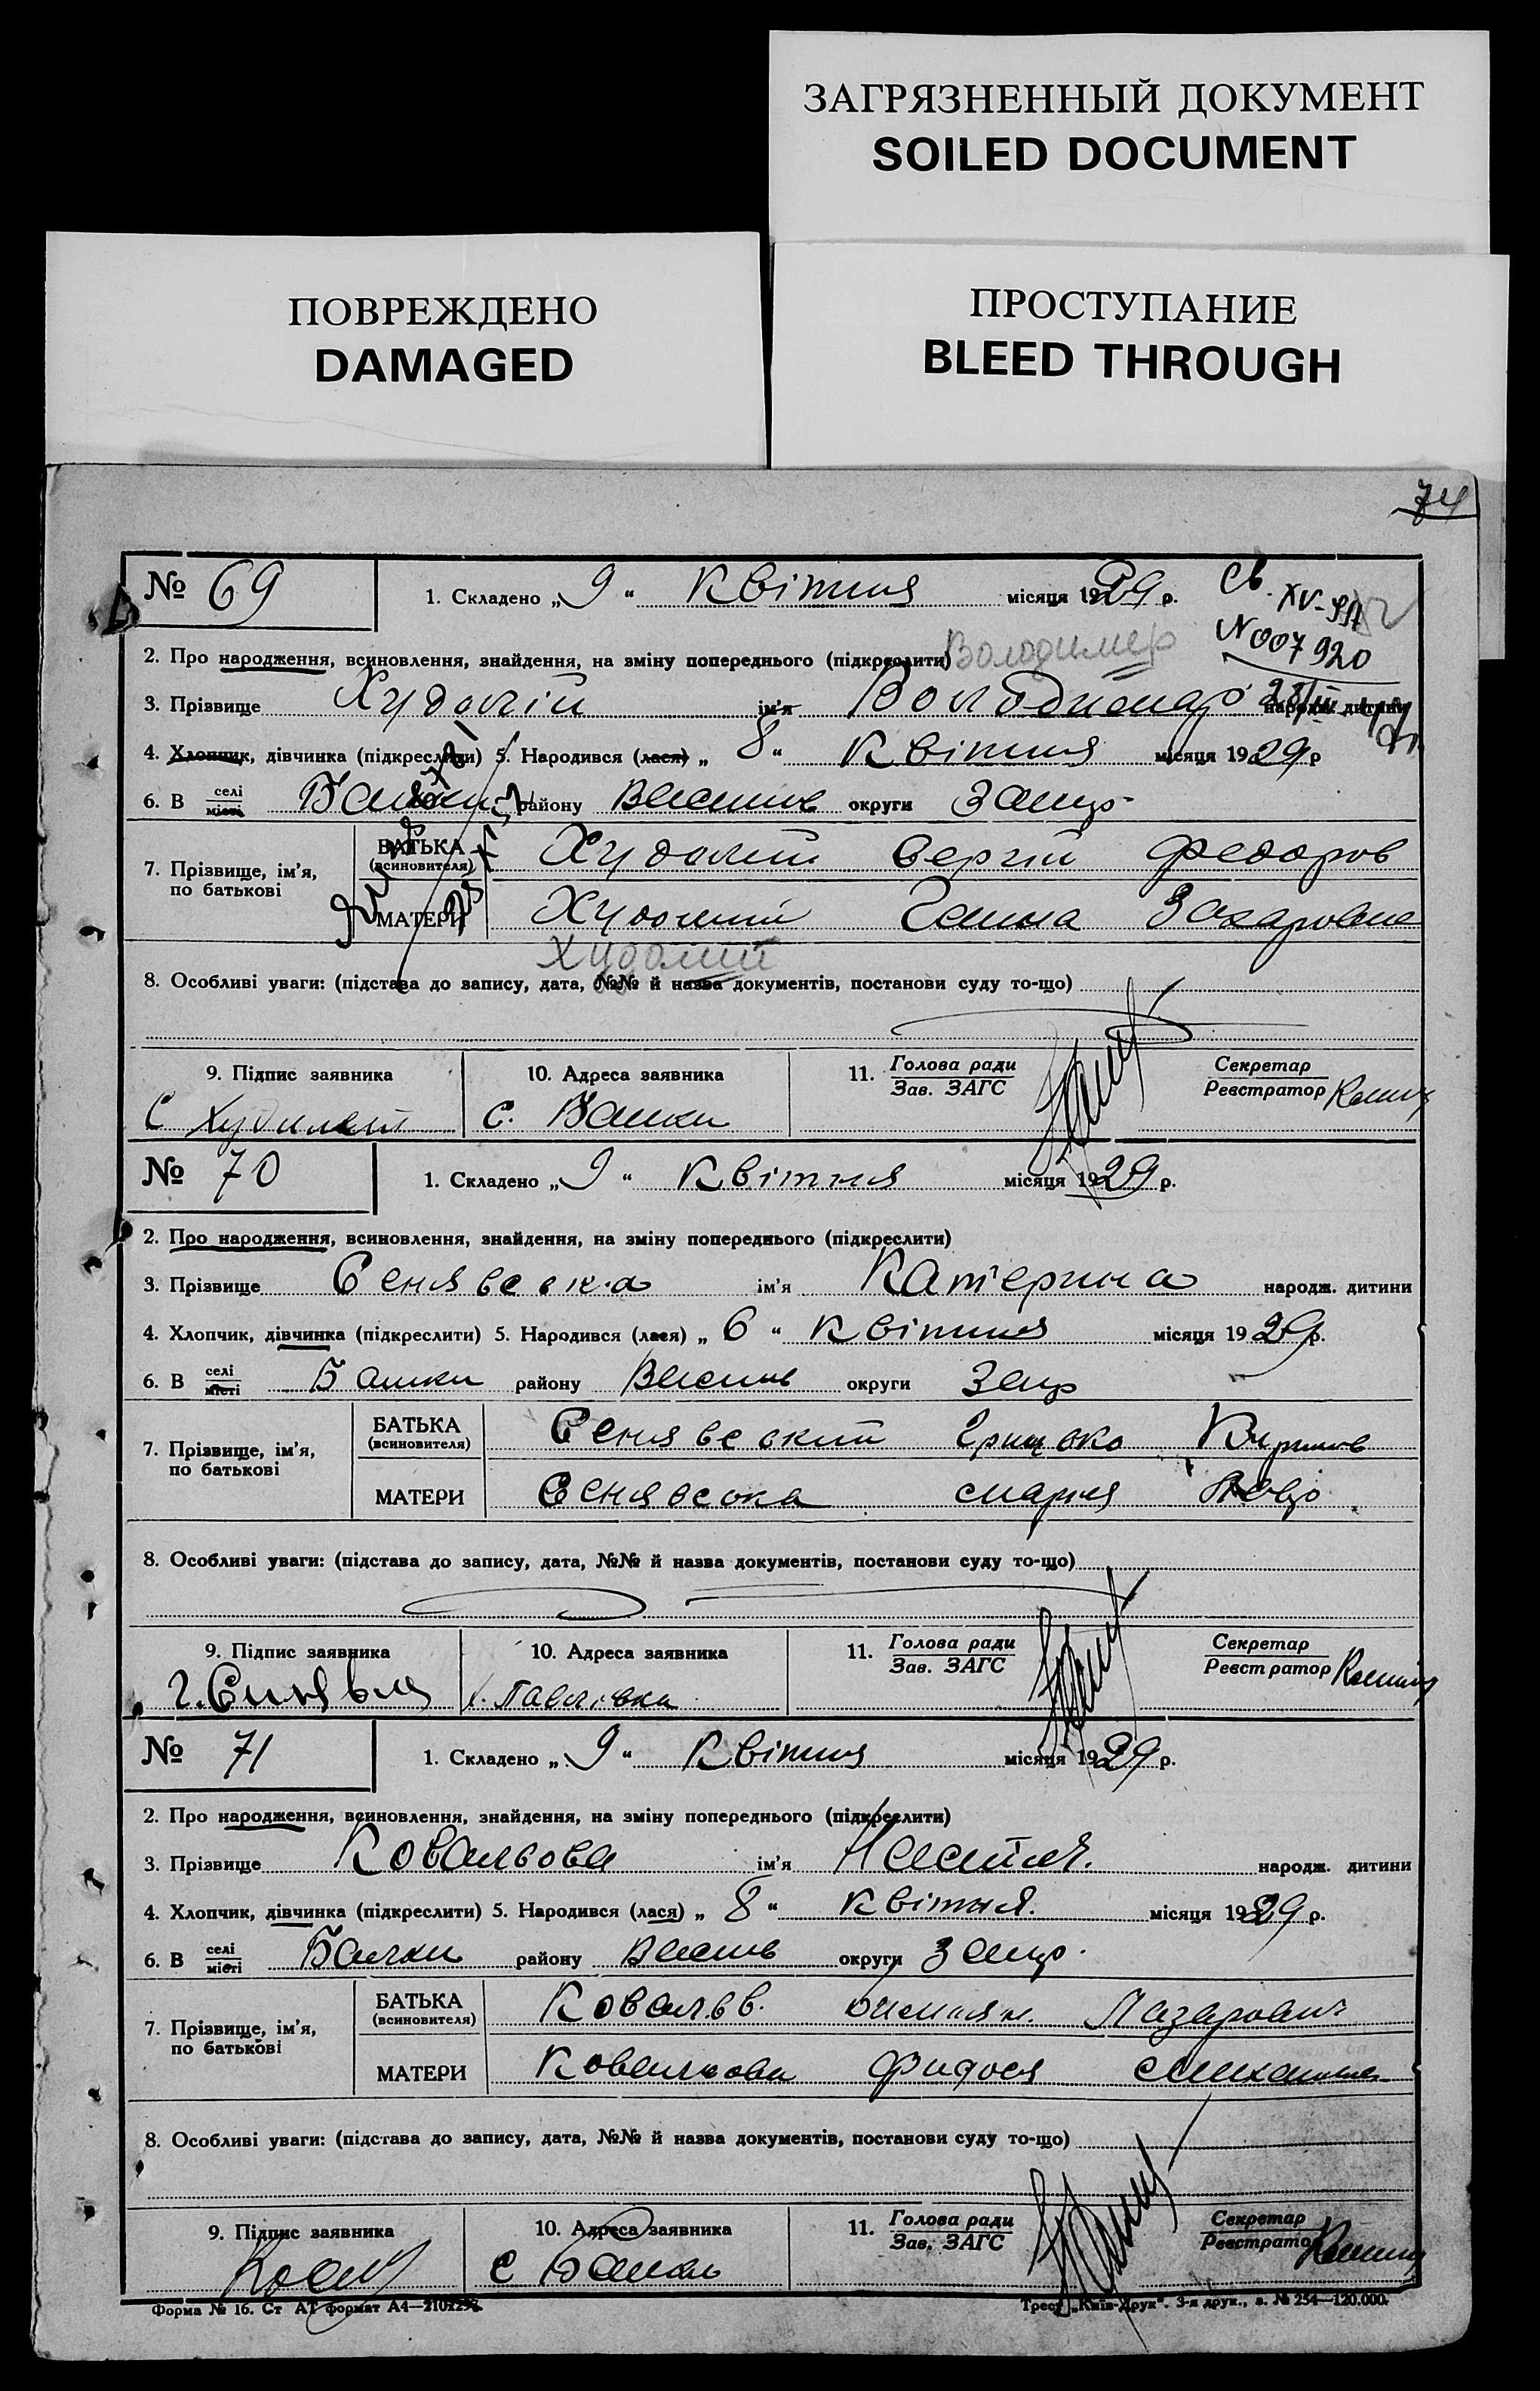 ЗАГРЯЗНЕННЫЙ ДОКУМЕНТ
SOILED DOCUMENT
ПОВРЕЖДЕНО
DAMAGED
ПРОСТУПАНИЕ
BLEED THROUGH
74
№ 69
1. Складено „ 9 “ Квітня місяця 1929 р.
Св. XV-
N 007920
2. Про народження, всиновлення, знайдення, на зміну попереднього (підкреслити) Володимер
3. Прізвище Худолій ім'я Володимер народж. дитини
4. Хлопчик, дівчинка (підкреслити) 5. Народився (лася) „ 8 “ Квітня місяця 1929 р
6. В селі місті Балки району Василів округи Запор
7. Прізвище, ім'я, по батькові
БАТЬКА (всиновителя) Худолий Сергій Федоров
МАТЕРИ Худолий Ганна Захаровна
Худолий
8. Особливі уваги: (підстава до запису, дата, №№ й назва документів, постанови суду то-що)
9. Підпис заявника 10. Адреса заявника 11. Голова ради Зав. ЗАГС Секретар Реєстратор
С Худолий с. Балки
№ 70
1. Складено „ 9 “ Квітня місяця 1929 р.
2. Про народження, всиновлення, знайдення, на зміну попереднього (підкреслити)
3. Прізвище Сенявська ім'я Катерина народж. дитини
4. Хлопчик, дівчинка (підкреслити) 5. Народився (лася) „ 6 “ Квітня місяця 1929 р.
6. В селі місті Балки району Василів округи Запр
7. Прізвище, ім'я, по батькові
БАТЬКА (всиновителя) Сенявский Грицько Кирилов
МАТЕРИ Сенявська Мария
8. Особливі уваги: (підстава до запису, дата, №№ й назва документів, постанови суду то-що)
9. Підпис заявника 10. Адреса заявника 11. Голова ради Зав. ЗАГС Секретар Реєстратор
х. Павлівка
№ 71
1. Складено „ 9 “ Квітня місяця 1929 р.
2. Про народження, всиновлення, знайдення, на зміну попереднього (підкреслити)
3. Прізвище Ковальова ім'я народж. дитини
4. Хлопчик, дівчинка (підкреслити) 5. Народився (лася) „ 8 “ Квітня місяця 1929 р.
6. В селі місті Балки району Василів округи Запр.
7. Прізвище, ім'я, по батькові
БАТЬКА (всиновителя) Ковальв. Лазарович
МАТЕРИ Ковальова Фидося
8. Особливі уваги: (підстава до запису, дата, №№ й назва документів, постанови суду то-що)
9. Підпис заявника 10. Адреса заявника 11. Голова ради Зав. ЗАГС Секретар Реєстратор
с Балки
Форма № 16. Ст АТ формат А4—
Трест „Київ-Друк“. 3-я друк., з. № 254—120.000.